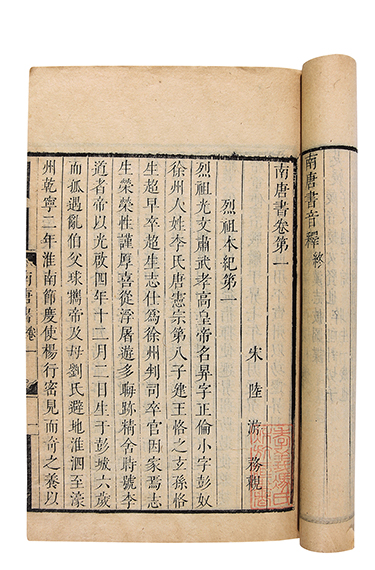 南唐書音釋 終
南唐書卷第一
宋 陸 游 務觀
烈祖本紀第一
烈祖光文肅武孝高皇帝名昪字正倫小字彭奴
徐州人姓李氏唐憲宗第八子建王恪之玄孫恪
生超早卒超生志仕為徐州判司卒官因家焉志
生榮榮性謹厚喜從浮屠遊多晦跡精舍時號李
道者帝以光啟四年十二月二日生于彭城六歲
而孤遇亂伯父球攜帝及母劉氏避地淮泗至濠
州乾寧二年淮南節度使楊行密見而奇之養以
南唐書卷一